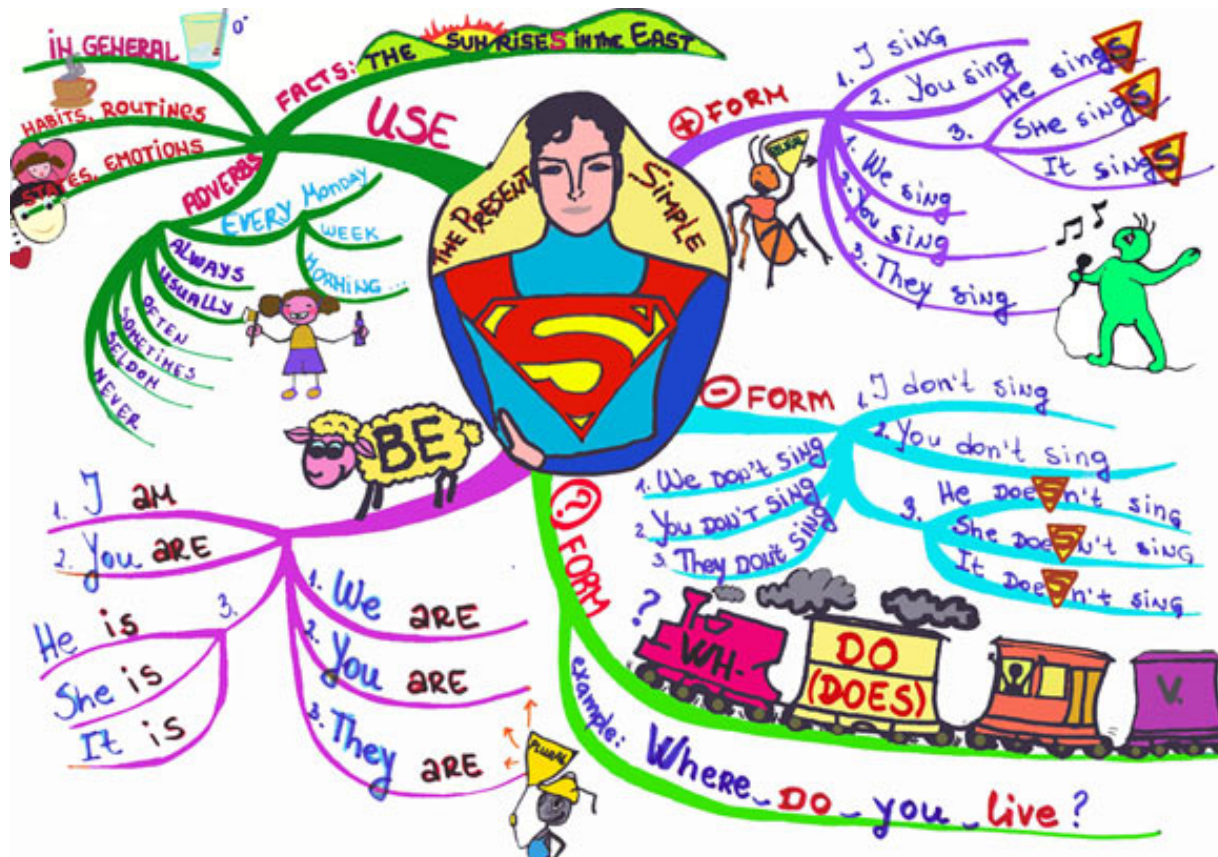 THE PRESENT SIMPLE
S
USE
FACTS: THE SUN RISES IN THE EAST
IN GENERAL
0°
HABITS, ROUTINES
STATES, EMOTIONS
ADVERBS
EVERY MONDAY
WEEK
MORNING...
ALWAYS
USUALLY
OFTEN
SOMETIMES
SELDOM
NEVER
+ FORM
1. I sing
2. You sing
3.
He singS
She singS
It singS
1. We sing
2. You sing
3. They sing
- FORM
1. I don't sing
2. You don't sing
3.
He DOESn't sing
She DOESn't sING
It DOESn't sING
1. We DON'T SING
2. You DON'T SING
3. They DON'T SING
? FORM
?
WH-
DO
(DOES)
V.
example: Where DO you live?
BE
1. I am
2. You aRE
3.
He is
She is
It is
1. We aRE
2. You aRE
3. They aRE
PLURAL